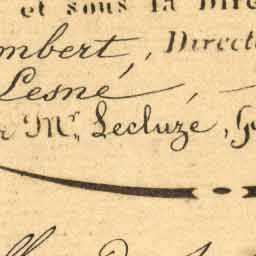 et sous la Dire
mbert, Directe
Lesné,
r Mr. Lecluze, G